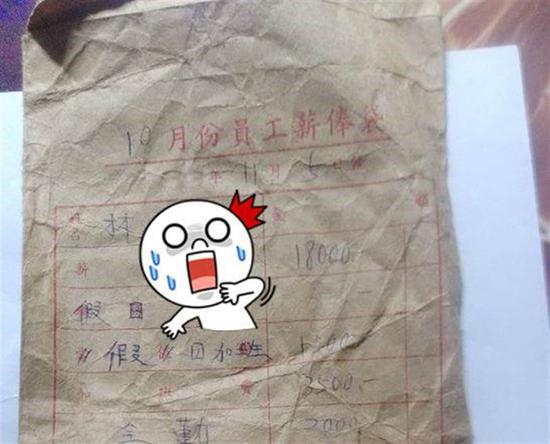 10月份員工薪俸袋
年11月5日
林
薪 18000
假日
假日加班
加班費 3500.-
全勤 2000